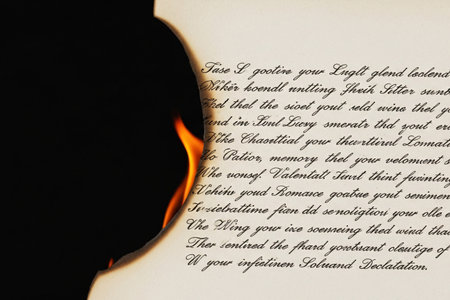 Tase L gootin your Lnglt glend loelend
Nikēr koendl nntting Jheih Sitter sunt
thel the sioet yout reld wine thel yo
in Soul Lucry smeratr thd yout er
Vike Chasettial your thurttirul Lonnat
Patior, memory thel your veloment s
Whe vonsy. Valentatl Surl thint
youd Romance goatue yout senimen
fian dd senoligtion your olle
Vhe Wing your ice soenreing thed wind tha
Ther sentred the fhard yocetuant cleutige of
W your infietinen Soluand Declatation.